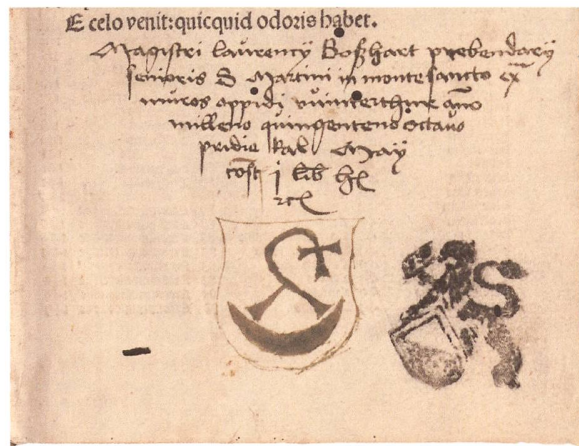 E celo venit: quicquid odoris habet.
Magistri laurentÿ Boſzhart prebendarÿ
senioris S Martini in monte sancto ex̄
muros oppidi vuinterthur año
milleno quingenteno octauo
pridie kal May
cost j lib hl